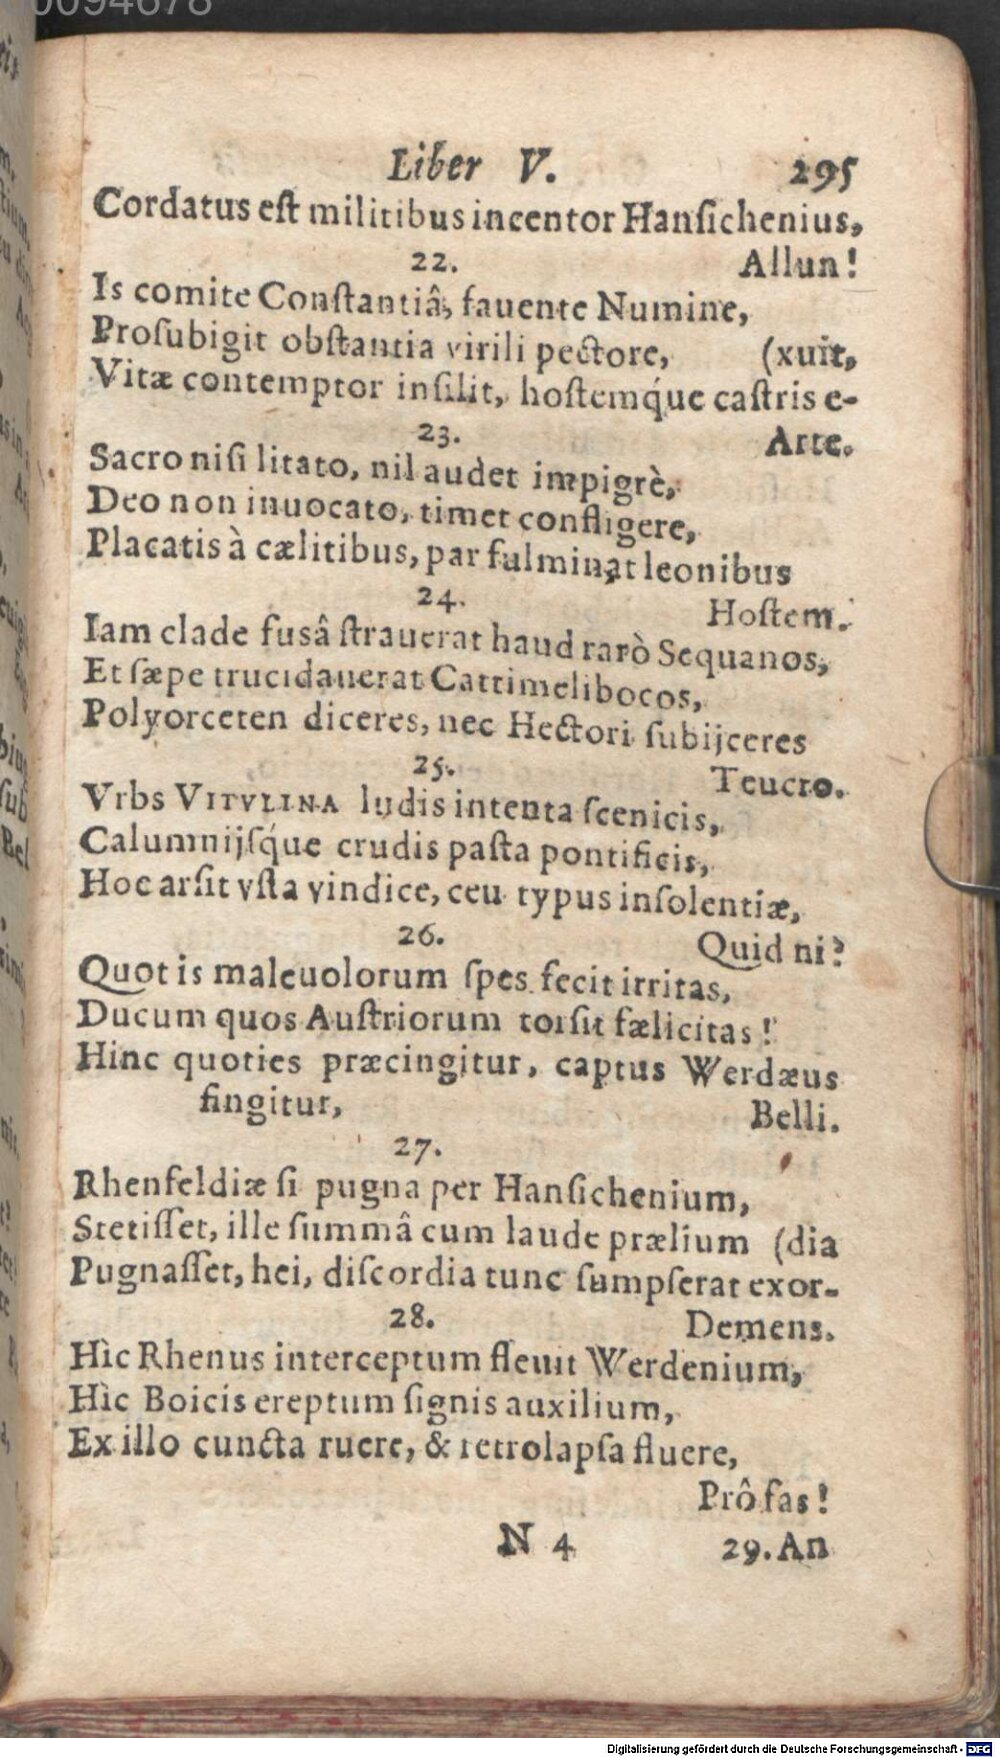 0094678
Liber V. 295
Cordatus eſt militibus incentor Hanſichenius,
22. Allun!
Is comite Conſtantiâ, fauente Numine,
Proſubigit obſtantia virili pectore, (xuit,
Vitæ contemptor inſilit, hoſtemq́ue caſtris e-
23. Arte.
Sacro niſi litato, nil audet impigrè,
Deo non inuocato, timet confligere,
Placatis à cælitibus, par fulminat leonibus
24. Hoſtem.
Iam clade fusâ ſtrauerat haud rarò Sequanos,
Et ſæpe trucidauerat Cattimelibocos,
Polyorceten diceres, nec Hectori ſubijceres
25. Teucro.
Vrbs VITVLINA ludis intenta ſcenicis,
Calumnijſq́ue crudis paſta pontificis,
Hoc arſit vſta vindice, ceu typus inſolentiæ,
26. Quid ni?
Quot is maleuolorum ſpes fecit irritas,
Ducum quos Auſtriorum torſit fælicitas!
Hinc quoties præcingitur, captus Werdæus
fingitur, Belli.
27.
Rhenfeldiæ ſi pugna per Hanſichenium,
Stetiſſet, ille ſummâ cum laude prælium (dia
Pugnaſſet, hei, diſcordia tunc ſumpſerat exor-
28. Demens.
Hìc Rhenus interceptum fleuit Werdenium,
Hìc Boicis ereptum ſignis auxilium,
Ex illo cuncta ruere, & retrolapſa fluere,
Prô fas!
N 4 29. An
Digitalisierung gefördert durch die Deutsche Forschungsgemeinschaft - DFG